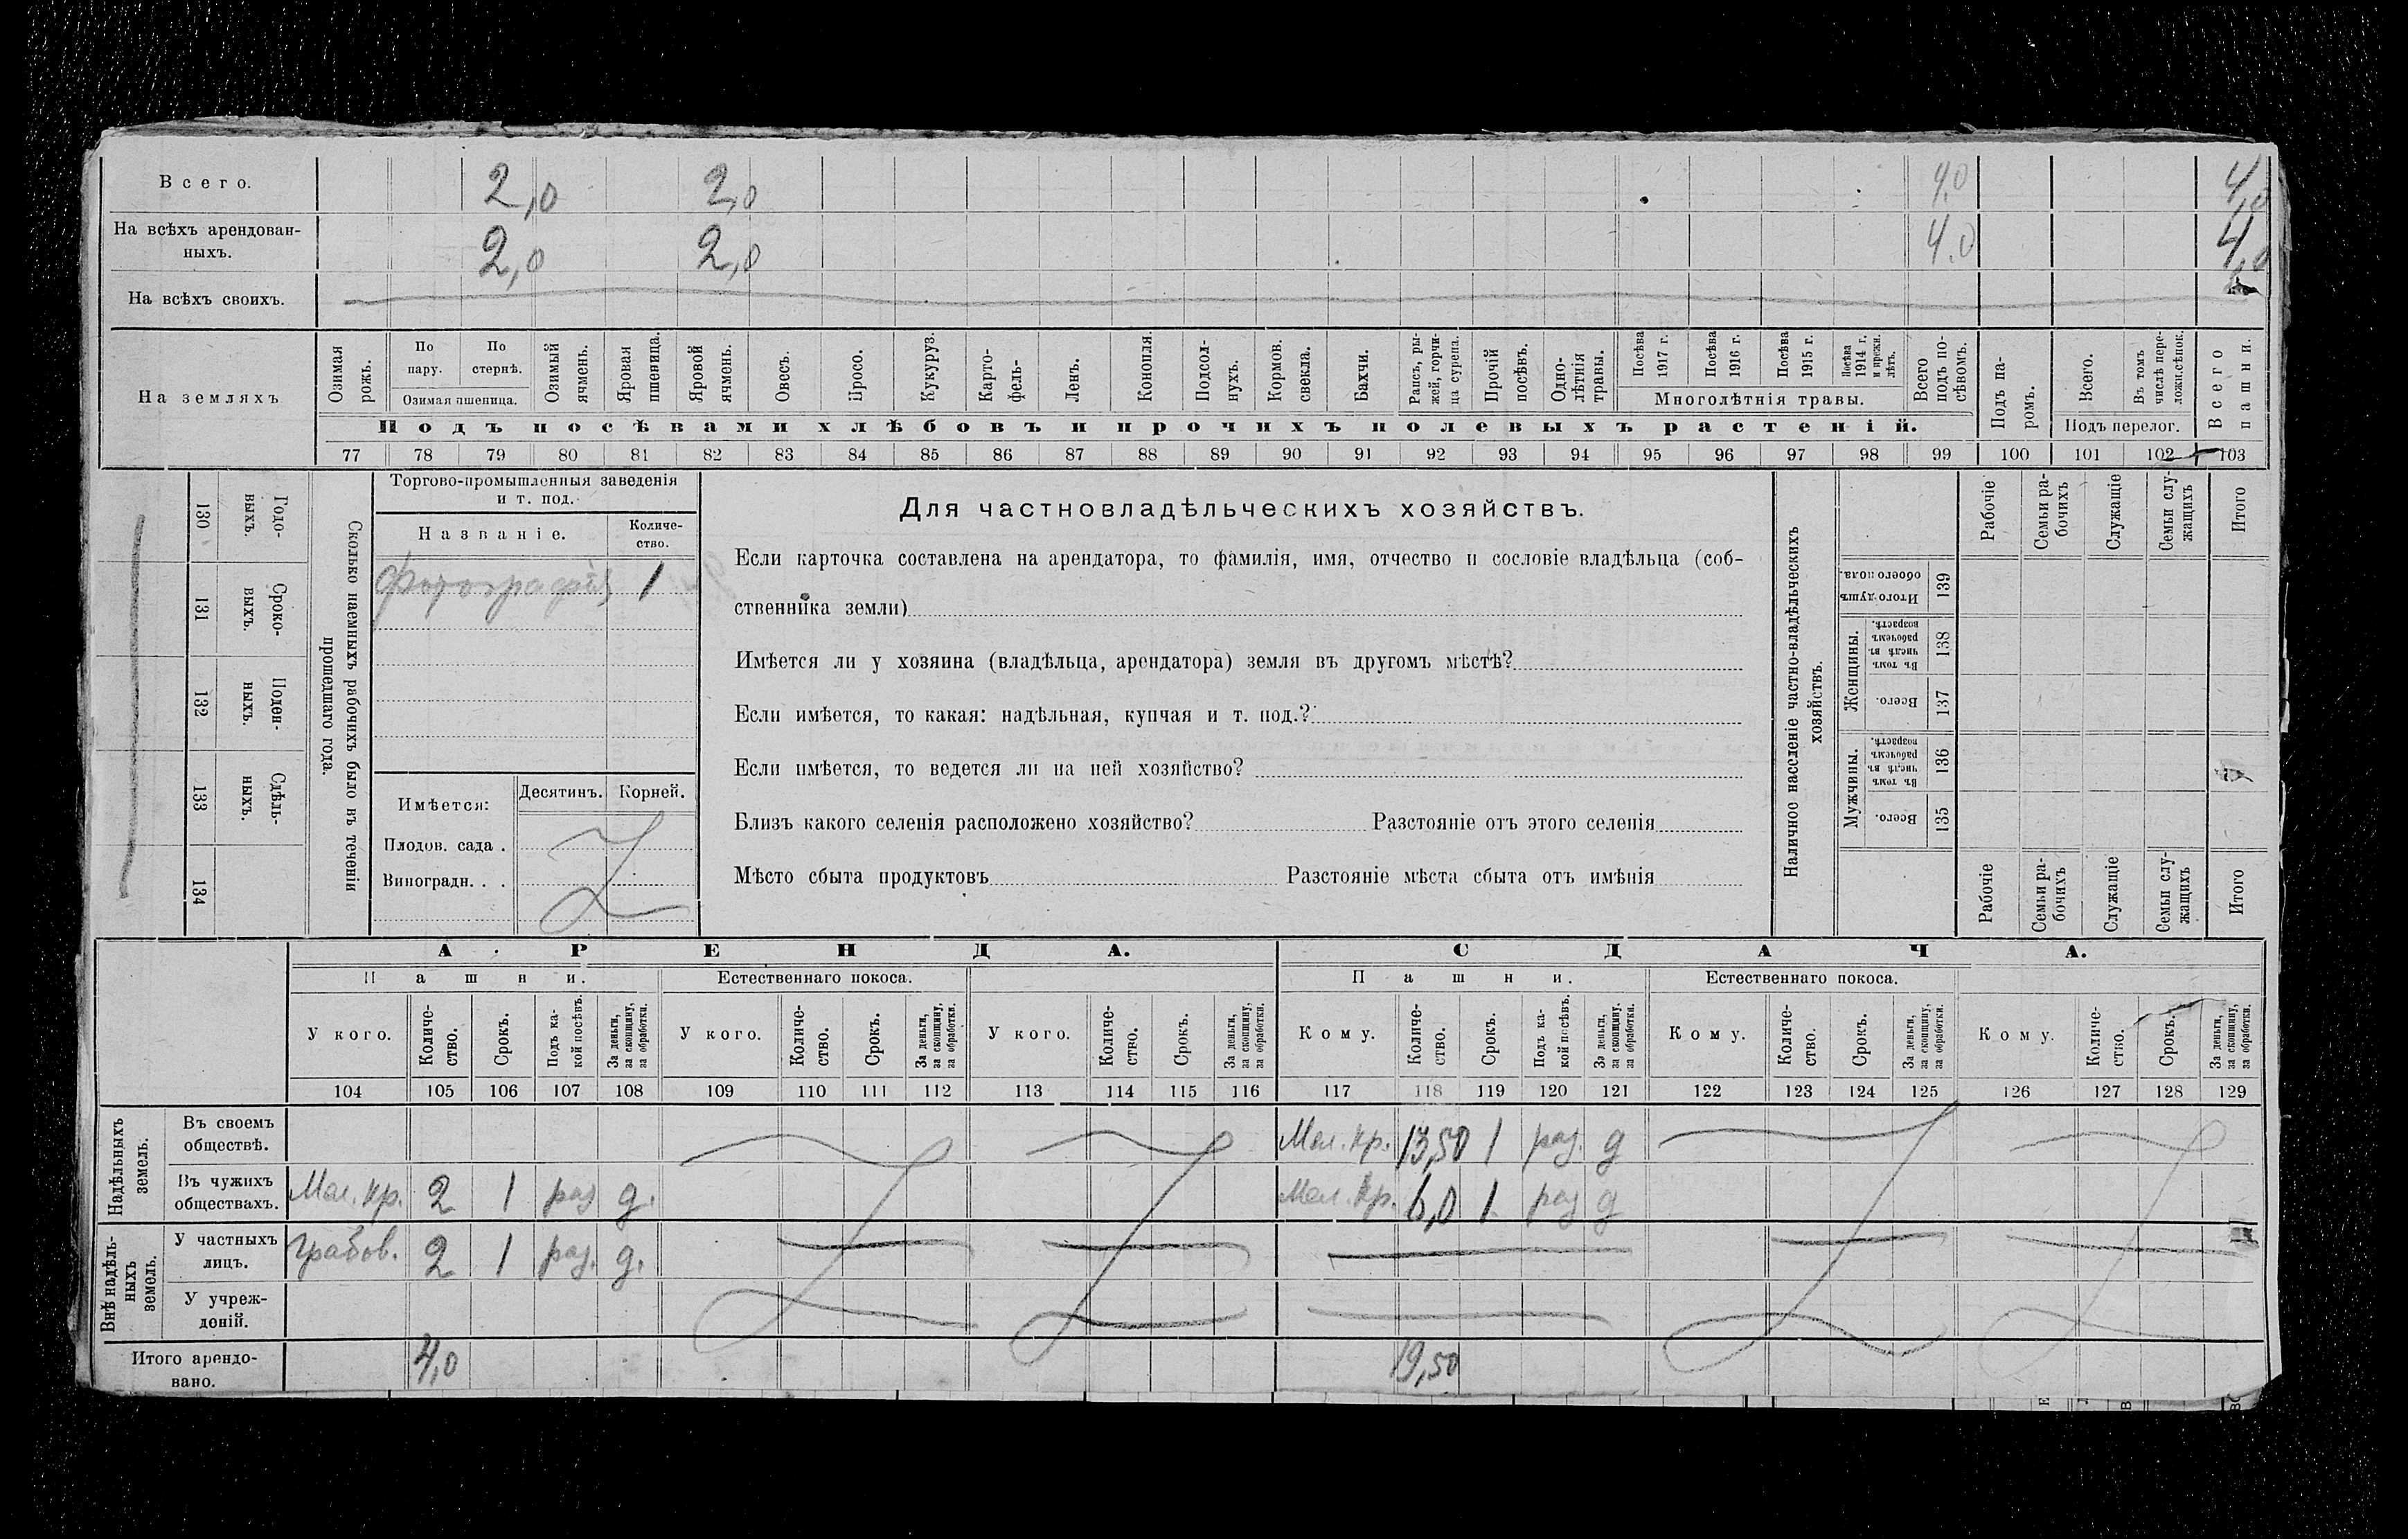 Всего. 2,0 2,0 4,0 4,0
На всѣхъ арендован-
ныхъ. 2,0 2,0 4,0 4,0
На всѣхъ своихъ.
На земляхъ
Озимая рожь.
По пару.
По стернѣ.
Озимая пшеница.
Озимый ячмень.
Яровая пшеница.
Яровой ячмень.
Овесъ.
Просо.
Кукуруз.
Карто-
фель-
Ленъ.
Конопля.
Подсол-
нухъ.
Кормов. свекла.
Бахчи.
Рапсъ, ры-
жей, горчи-
ца сурепа.
Прочій посѣвъ.
Одно-
лѣтнія травы.
Посѣва 1917 г.
Посѣва 1916 г.
Посѣва 1915 г.
Посѣва 1914 г. и прежн. лѣтъ.
Многолѣтнія травы.
Всего подъ по-
сѣвомъ.
Подъ посѣвами хлѣбовъ и прочихъ полевыхъ растеній.
Подъ па-
ромъ.
Всего.
Въ томъ числѣ пере-
ложн.сѣнок.
Подъ перелог.
Всего пашни.
77 78 79 80 81 82 83 84 85 86 87 88 89 90 91 92 93 94 95 96 97 98 99 100 101 102 103
Годо-
выхъ.
130
Сроко-
выхъ.
131
Поден-
ныхъ.
132
Сдѣль-
ныхъ.
133
134
Сколько наемныхъ рабочихъ было въ теченіи
прошедшаго года.
Торгово-промышленныя заведенія
и т. под.
Названіе. Количе-
ство.
Фотографія 1
Имѣется: Десятинъ. Корней.
Плодов. сада .
Виноградн. . .
Для частновладѣльческихъ хозяйствъ.
Если карточка составлена на арендатора, то фамилія, имя, отчество и сословіе владѣльца (соб-
ственника земли)
Имѣется ли у хозяина (владѣльца, арендатора) земля въ другомъ мѣстѣ?
Если имѣется, то какая: надѣльная, купчая и т. под.?
Если имѣется, то ведется ли на ней хозяйство?
Близъ какого селенія расположено хозяйство? Разстояніе отъ этого селенія
Мѣсто сбыта продуктовъ Разстояніе мѣста сбыта отъ имѣнія
Наличное населеніе частно-владѣльческихъ
хозяйствъ.
Рабочіе
Семьи ра-
бочихъ
Служащіе
Семьи слу-
жащихъ
Итого
Итого душъ обоего пола. 139
Женщины.
Въ томъ числѣ въ рабочемъ возрастѣ. 138
Всего. 137
Мужчины.
Въ томъ числѣ въ рабочемъ возрастѣ. 136
Всего. 135
Рабочіе
Семьи ра-
бочихъ
Служащіе
Семьи слу-
жащихъ
Итого
АРЕНДА. СДАЧА.
Пашни. Естественнаго покоса. Пашни. Естественнаго покоса.
У кого.
Количе-
ство.
Срокъ.
Подъ ка-
кой посѣвъ.
За деньги, за скопщину, за обработки.
У кого.
Количе-
ство.
Срокъ.
За деньги, за скопщину, за обработки.
У кого.
Количе-
ство.
Срокъ.
За деньги, за скопщину, за обработки.
Кому.
Количе-
ство.
Срокъ.
Подъ ка-
кой посѣвъ.
За деньги, за скопщину, за обработки.
Кому.
Количе-
ство.
Срокъ.
За деньги, за скопщину, за обработки.
Кому.
Количе-
ство.
Срокъ.
За деньги, за скопщину, за обработки.
104 105 106 107 108 109 110 111 112 113 114 115 116 117 118 119 120 121 122 123 124 125 126 127 128 129
Надѣльныхъ земель.
Въ своемъ
обществѣ. Мал. кр. 13,50 1 раз. д
Въ чужихъ
обществахъ. Мал. кр. 2 1 раз д. Мал. кр. 6,0 1 раз д
Внѣ надѣль-
ныхъ земель.
У частныхъ
лицъ. Грабов. 2 1 раз. д.
У учреж-
деній.
Итого арендо-
вано. 4,0 19,50